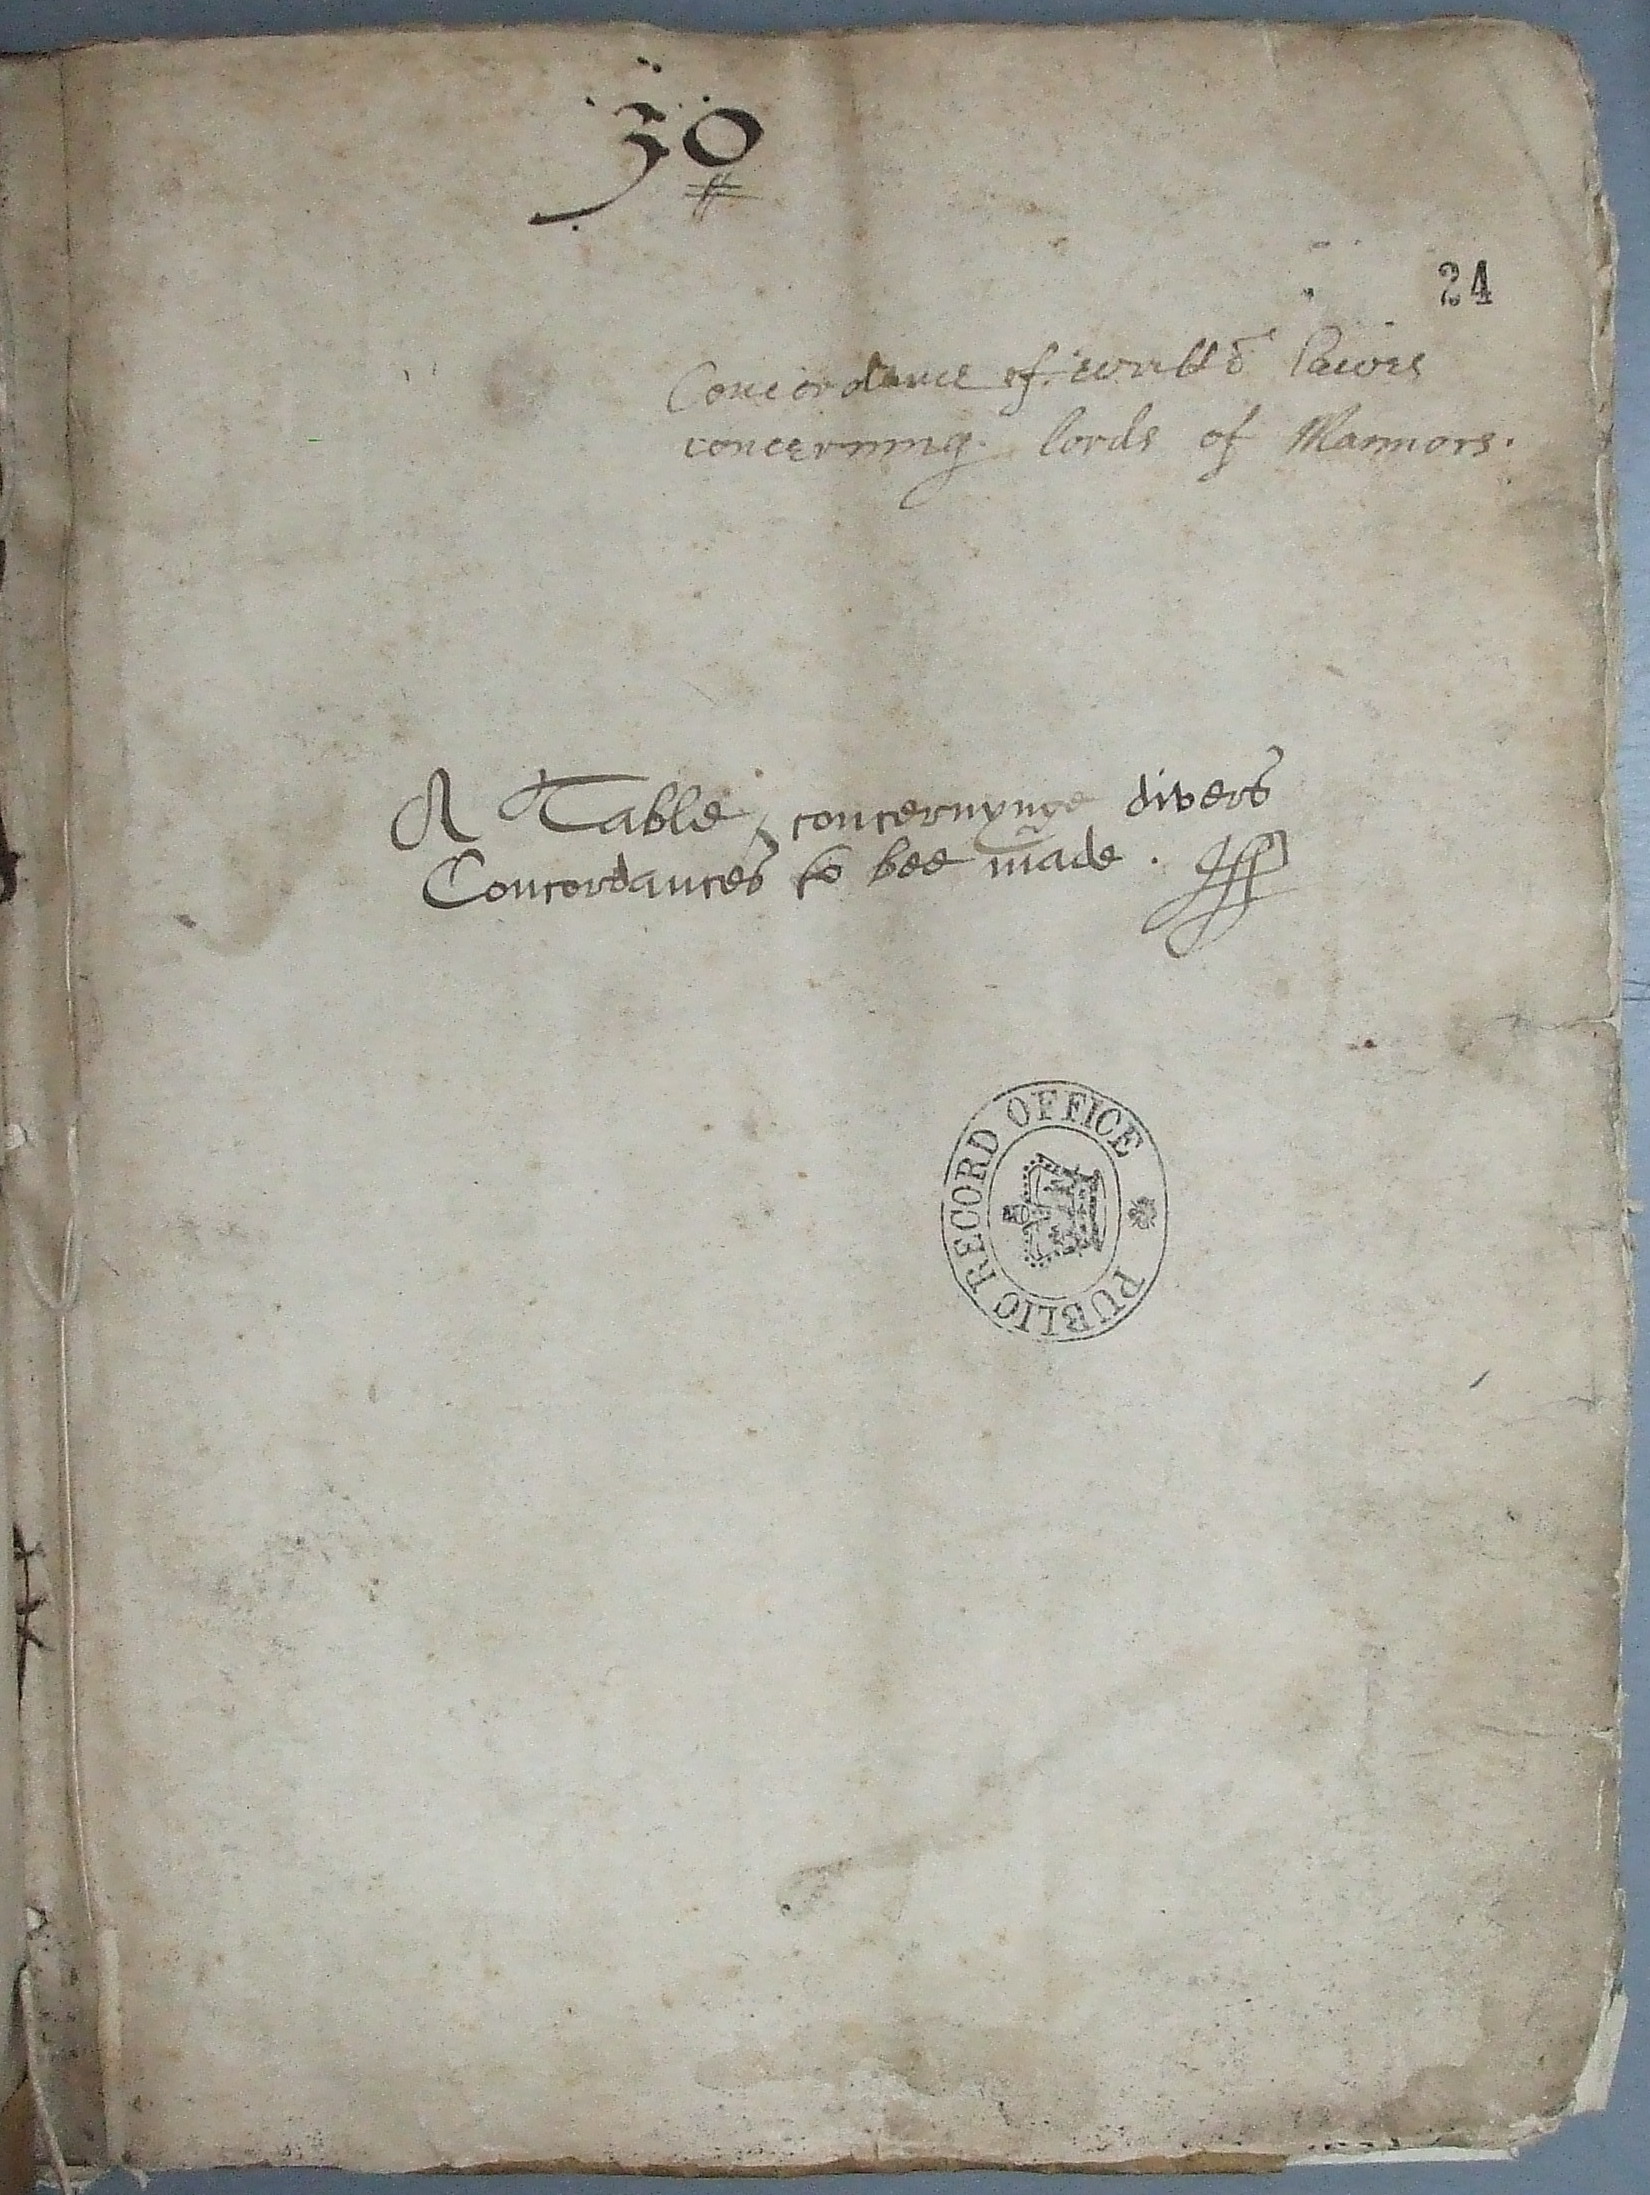 30
24
Concordance of lawes
concerning lords of Mannors.
A Table, concernynge divers
Concordances to bee made.
PUBLIC RECORD OFFICE